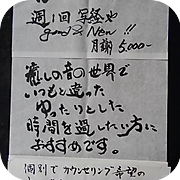 週1回 写経
good!! New!!
月謝 5,000-
癒しの音の世界で
いつもと違った
ゆったりとした
時間を過したい方に
おすすめです。
個別でカウンセリング希望の